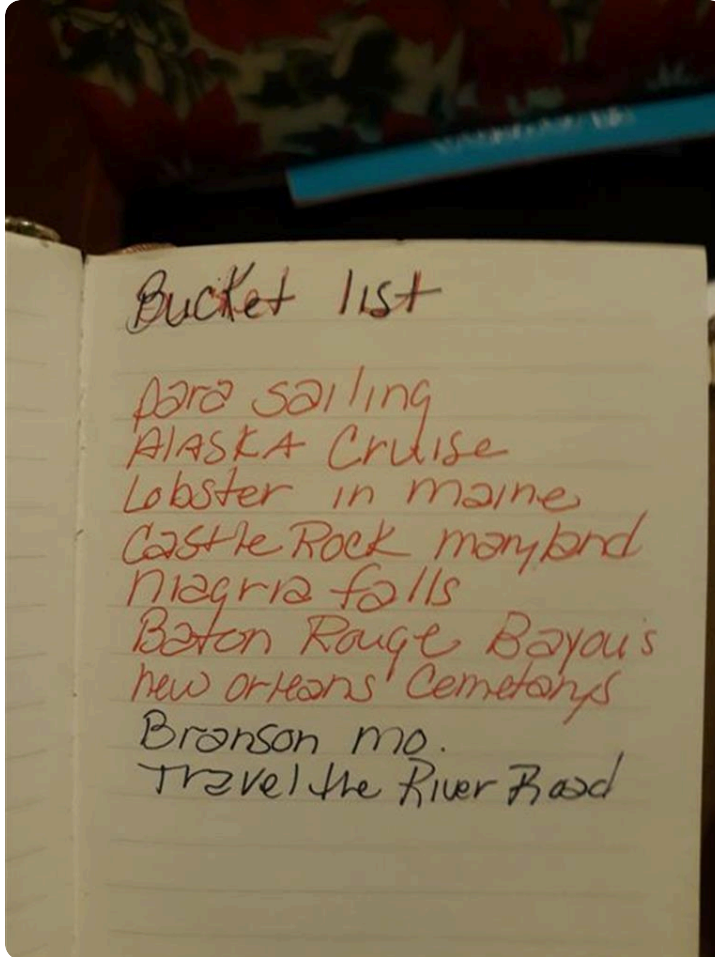 Bucket list
para sailing
AlASKA Cruise
Lobster in maine
Castle Rock maryland
niagria falls
Baton Rouge Bayou's
new orleans' Cemetarys
Branson mo.
Travel the River Road